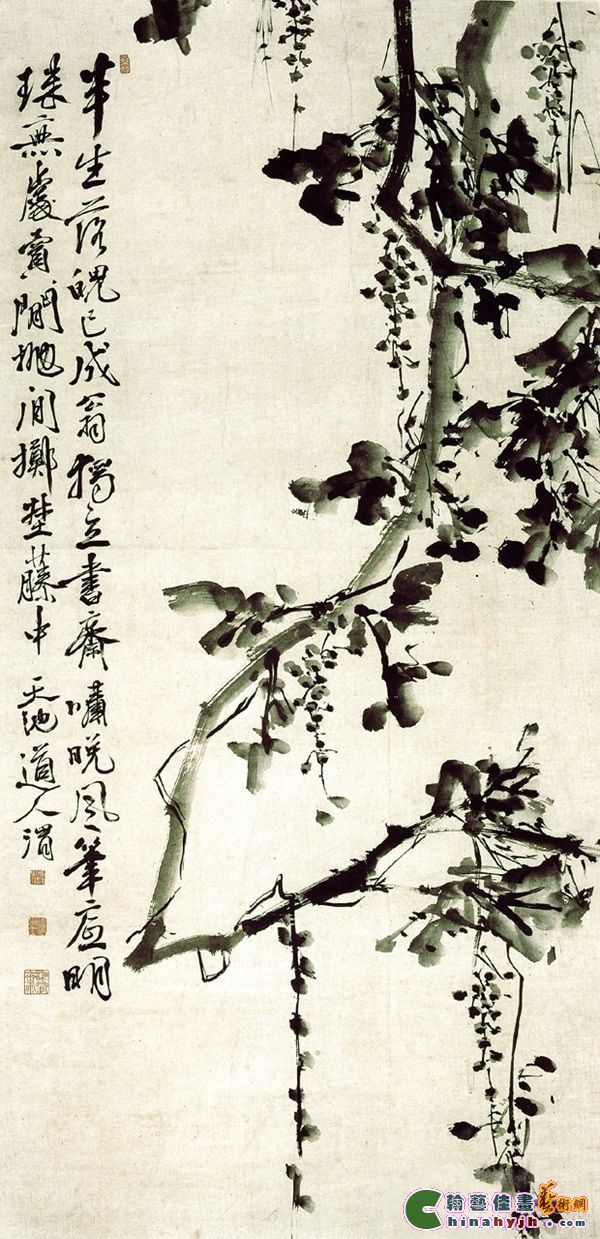 半生落魄已成翁獨立書齋嘯晚風筆底明
珠無處賣閒拋閒擲埜藤中 天池道人渭
翰藝佳畫藝術網
Chinahyjh.com